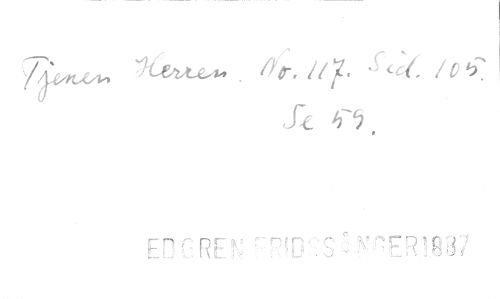 Tjenen Herren. No. 117. Sid. 105.
Se 59.
EDGREN FRIDSSÅNGER 1887